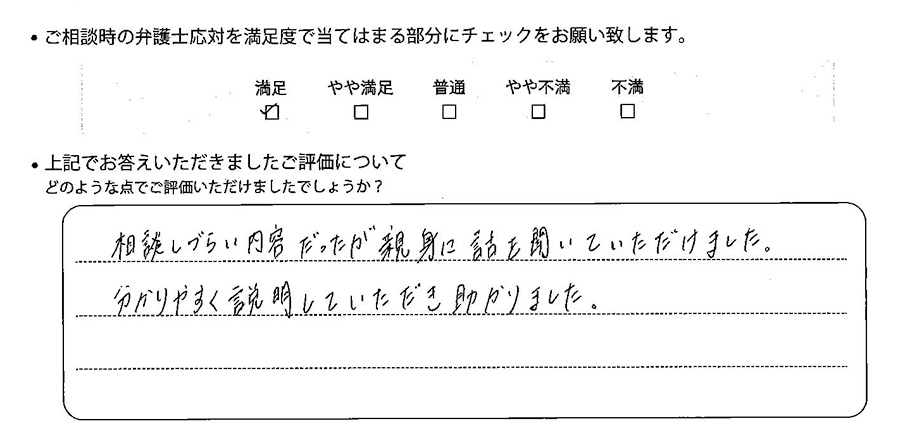 ・ご相談時の弁護士応対を満足度で当てはまる部分にチェックをお願い致します。
満足 やや満足 普通 やや不満 不満
☑ □ □ □ □
・上記でお答えいただきましたご評価について
どのような点でご評価いただけましたでしょうか？
相談しづらい内容だったが親身に話を聞いていただけました。
分かりやすく説明していただき助かりました。